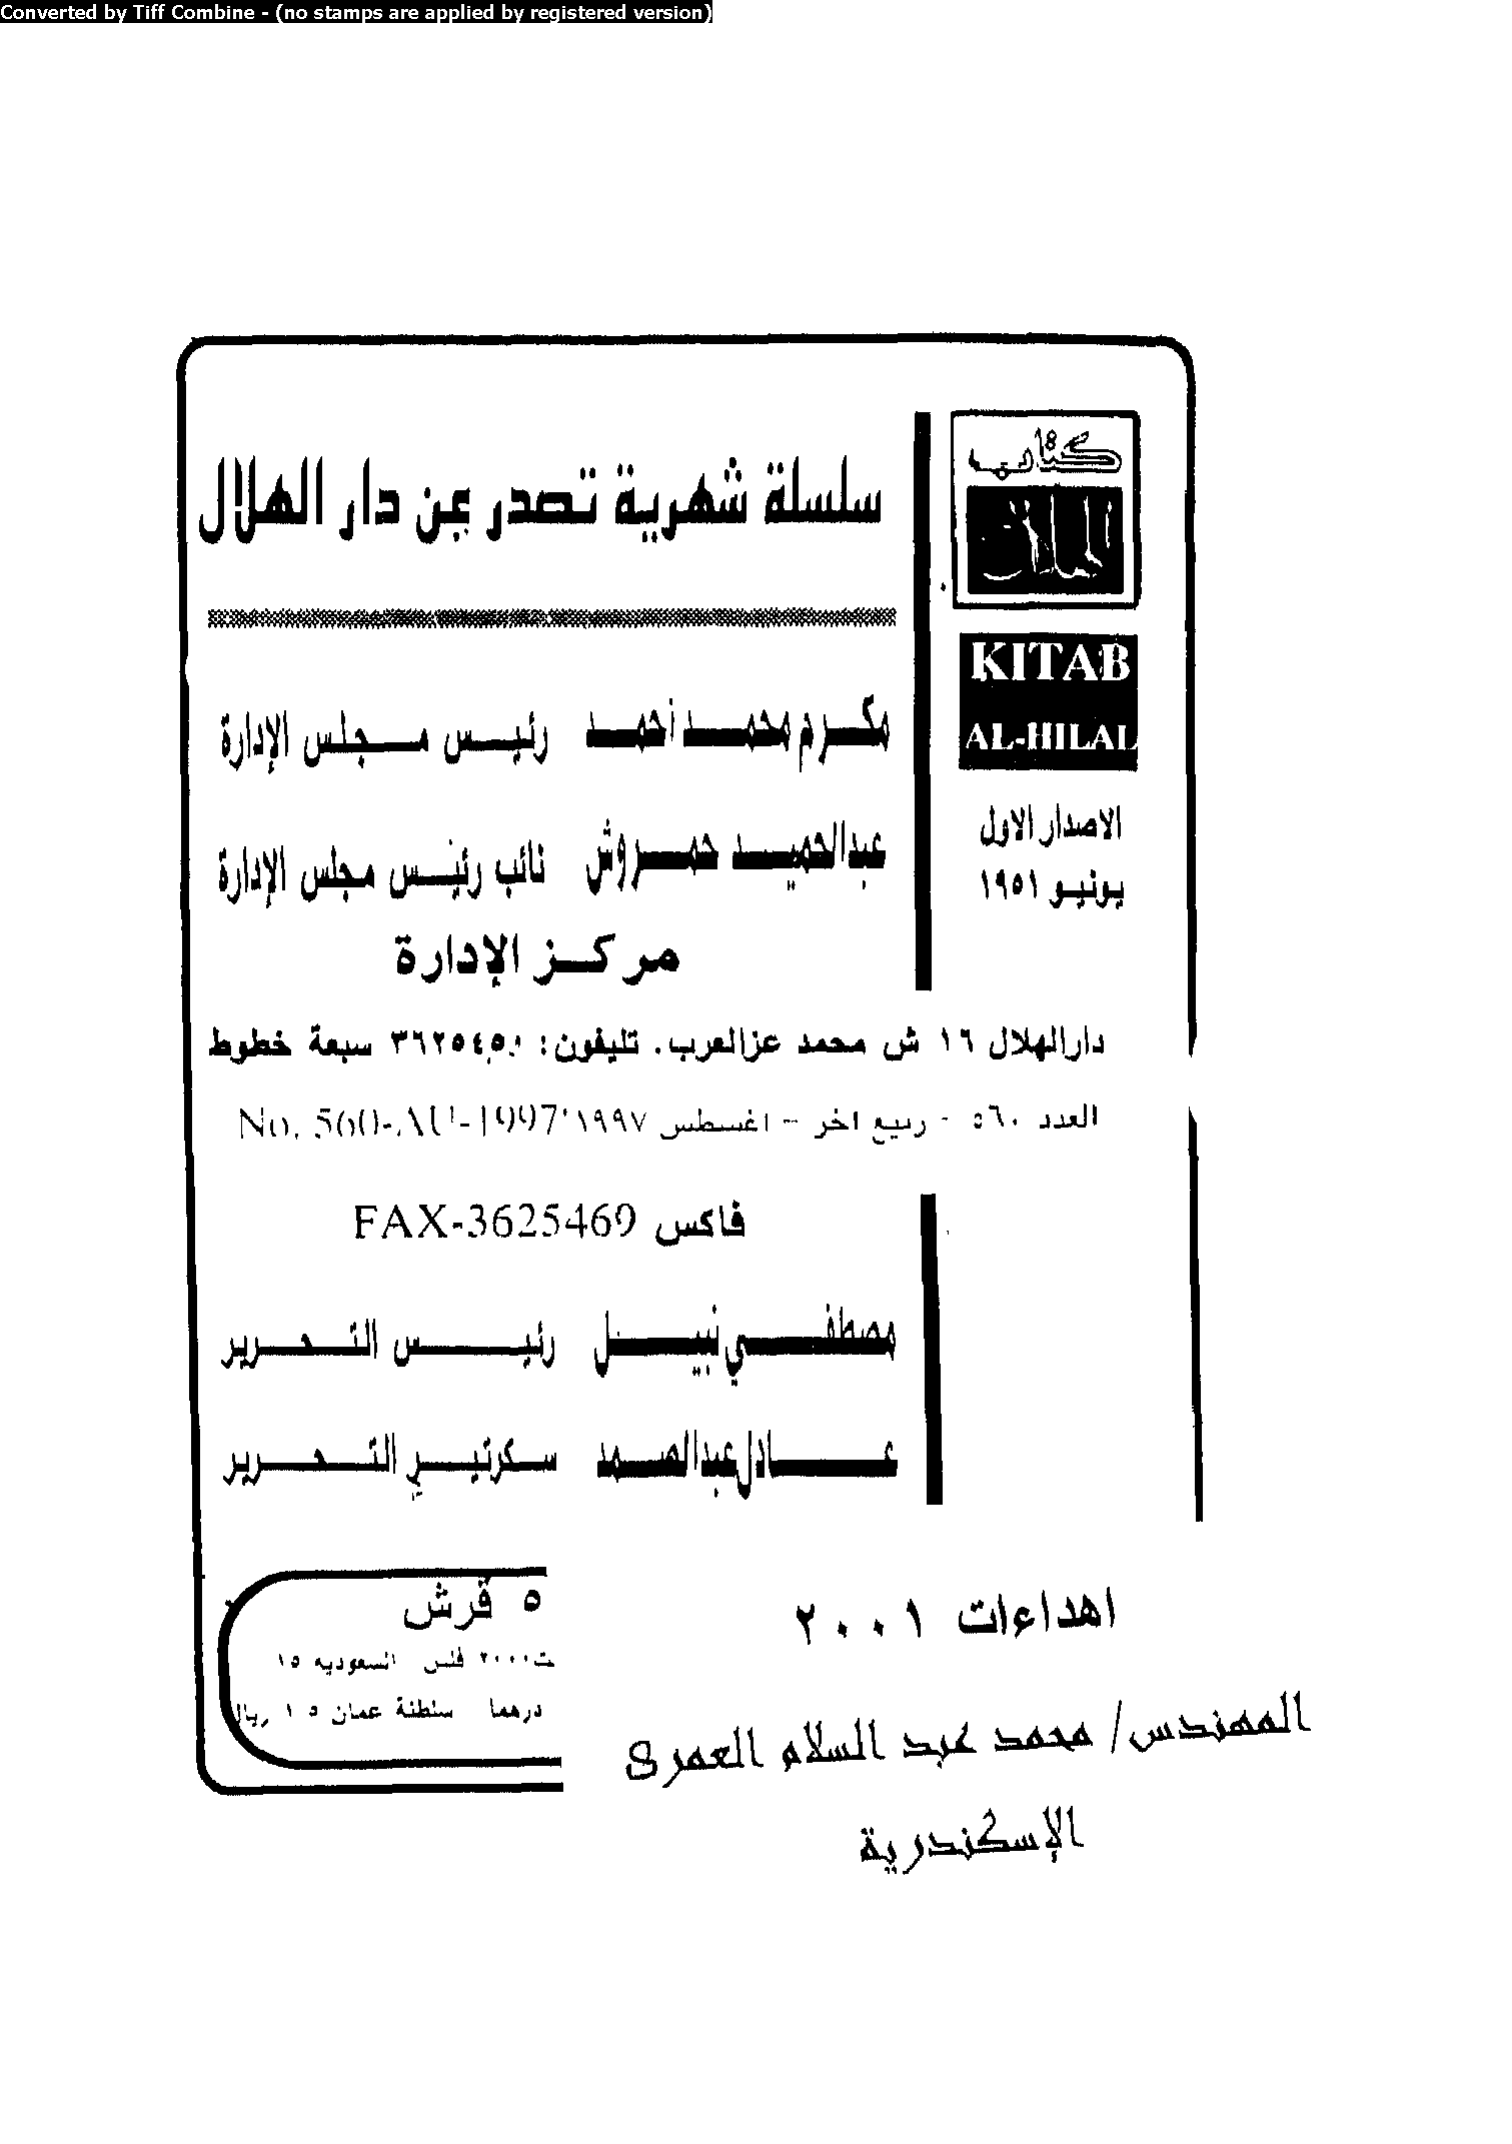 Converted by Tiff Combine - (no stamps are applied by registered version)
كتاب
الهلال
KITAB
AL-HILAL
الاصدار الاول
يونيو ١٩٥١
سلسلة شهرية تصدر عن دار الهلال
مكرم محمد أحمد رئيس مجلس الإدارة
عبدالحميد حمروش نائب رئيس مجلس الإدارة
مركز الإدارة
دارالهلال ١٦ ش محمد عزالعرب. تليفون: ٣٦٢٥٤٥٠ سبعة خطوط
العدد ٥٦٠ - ربيع اخر - اغسطس ١٩٩٧ No. 560-AU-1997
فاكس FAX-3625469
مصطفى نبيل رئيس التحرير
عادل عبدالصمد سكرتير التحرير
٥ قرش
٢٠٠٠ فلس السعوديه ١٥
درهما سلطنة عمان ١٫٥ ريال
اهداءات ٢٠٠١
المهندس/ محمد عبد السلام العمرى
الإسكندرية